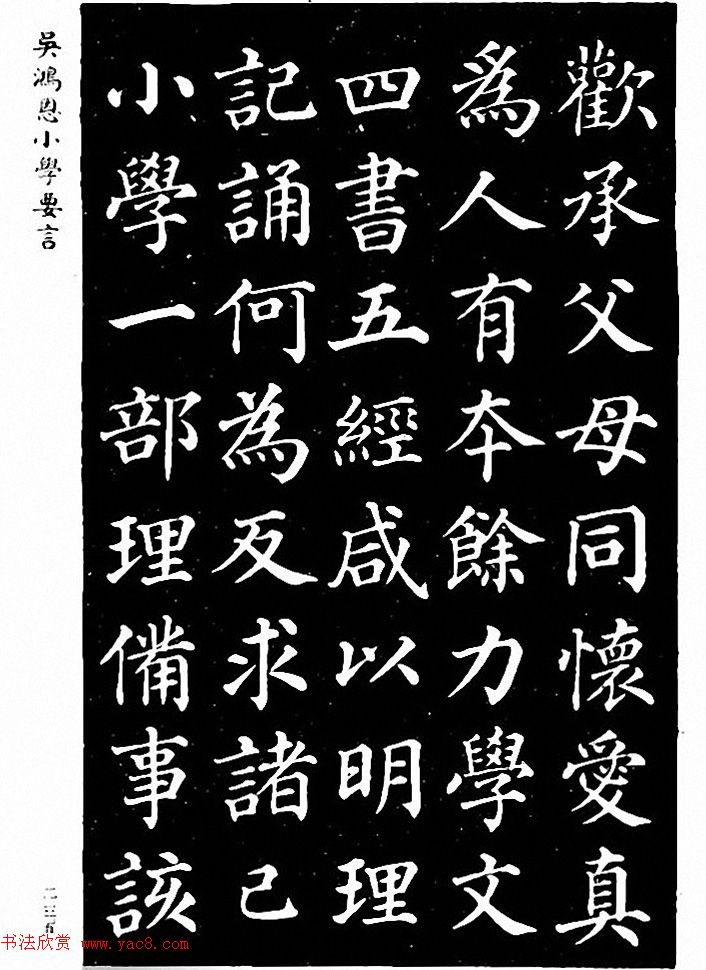 歡承父母同懷愛真
爲人有本餘力學文
四書五經咸以明理
記誦何為反求諸己
小學一部理備事該
吳鴻恩小學要言
二三五
书法欣赏 www.yac8.com